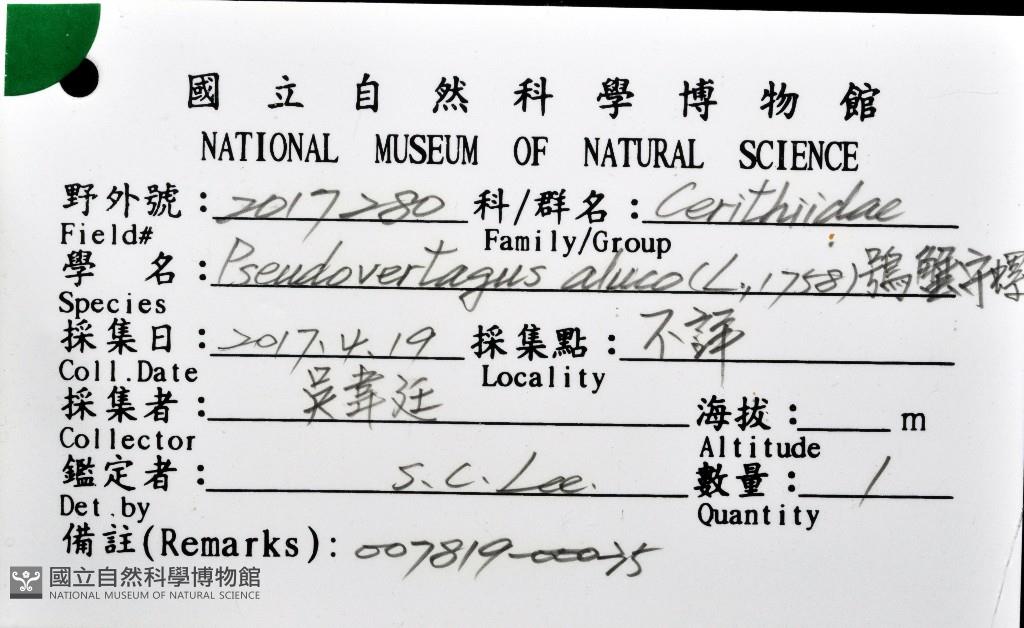 國立自然科學博物館
NATIONAL MUSEUM OF NATURAL SCIENCE
野外號：2017280 科/群名：Cerithiidae
Field# Family/Group
學名：Pseudovertagus aluco (L., 1758) 鴞蟹守螺
Species
採集日：2017.4.19 採集點：不詳
Coll.Date Locality
採集者：吳韋廷 海拔： m
Collector Altitude
鑑定者：S. C. Lee. 數量：1
Det.by Quantity
備註(Remarks):007819-00075
國立自然科學博物館
NATIONAL MUSEUM OF NATURAL SCIENCE